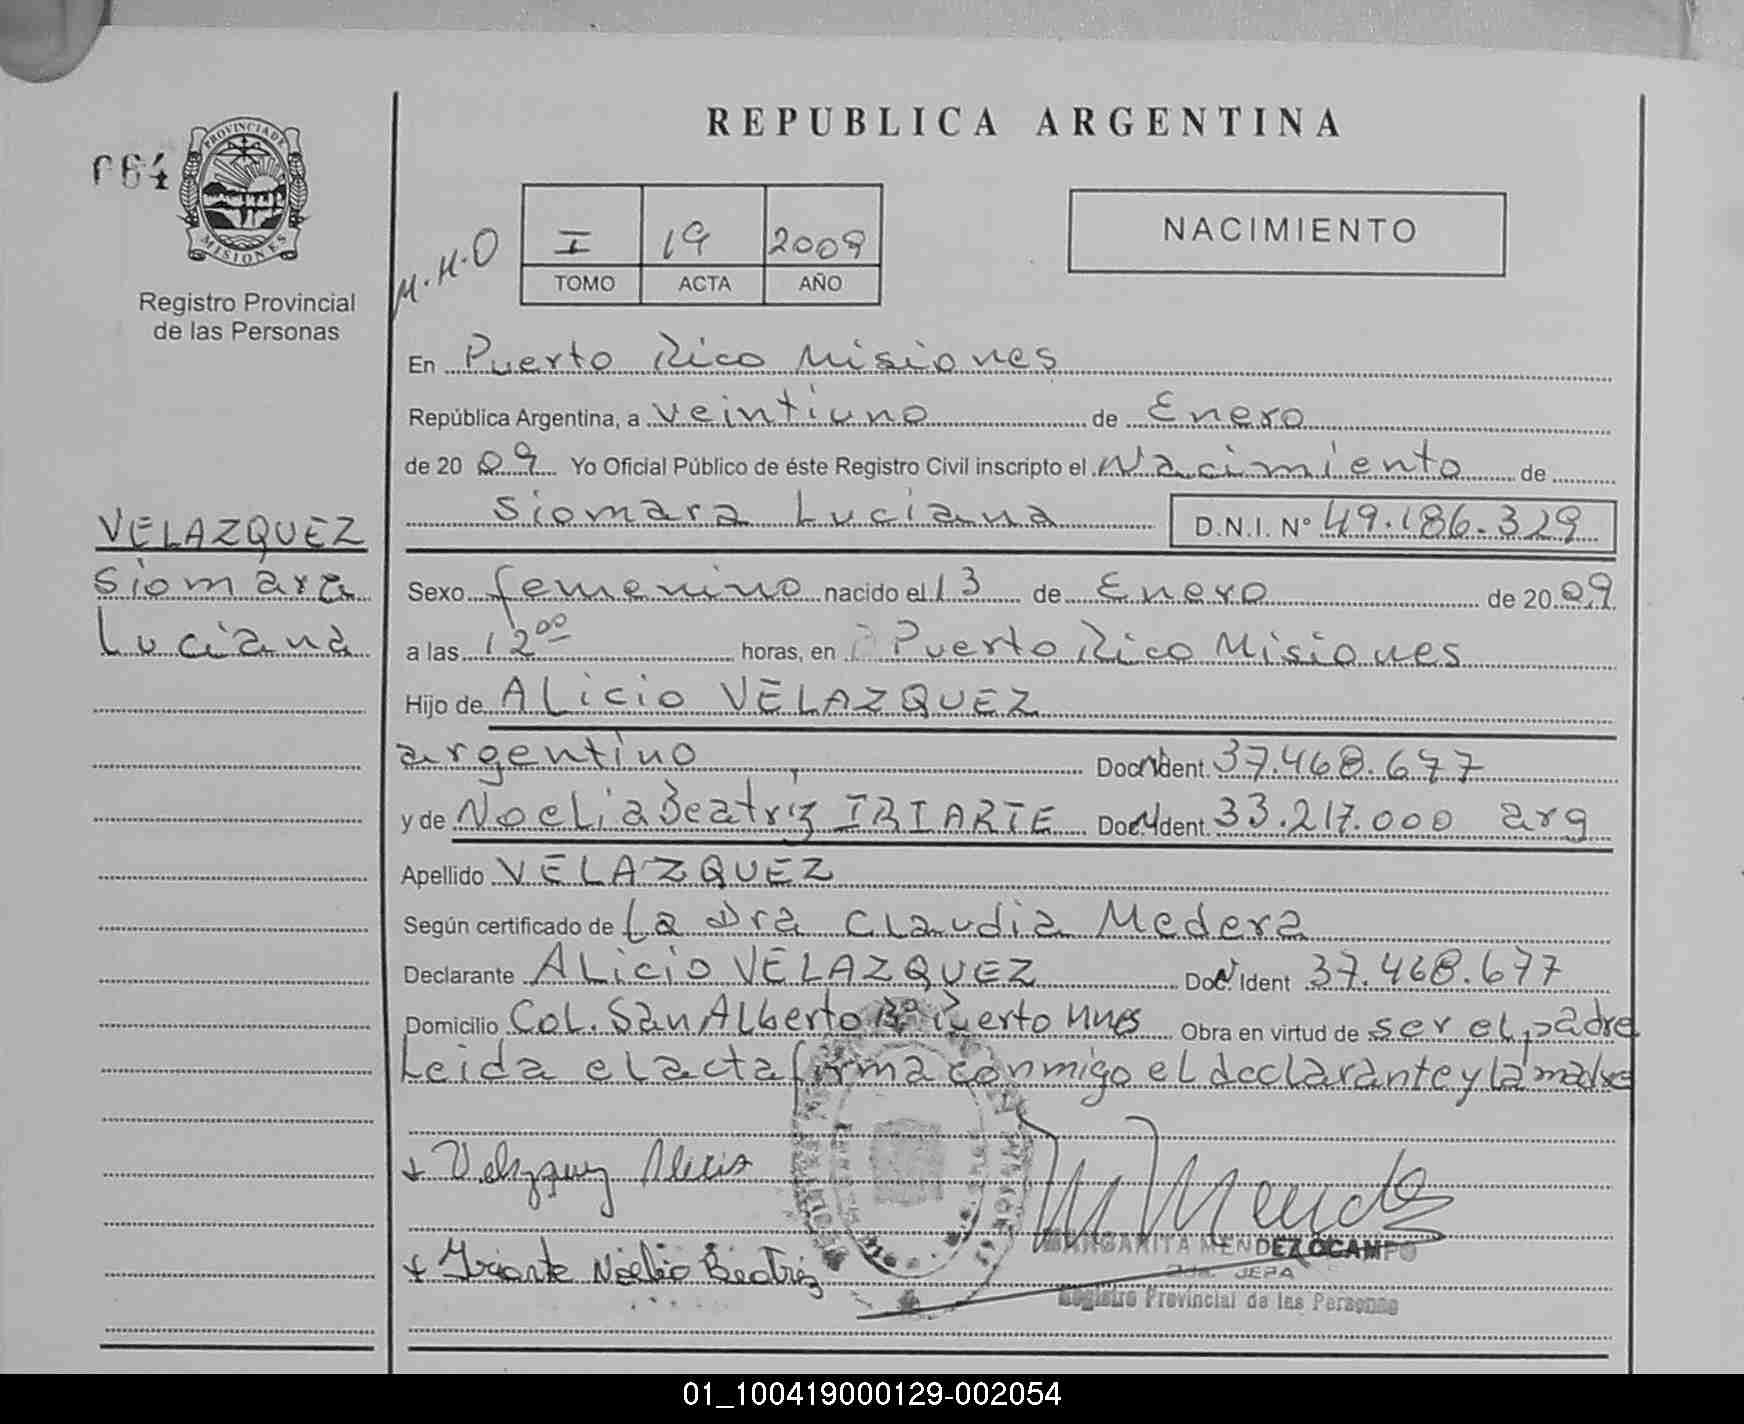 REPUBLICA ARGENTINA
064
PROVINCIA DE
MISIONES
Registro Provincial
de las Personas
M.H.O
I 19 2009
TOMO ACTA AÑO
NACIMIENTO
En Puerto Rico Misiones
República Argentina, a veintiuno de Enero
de 20 09 Yo Oficial Público de éste Registro Civil inscripto el Nacimiento de
Siomara Luciana D.N.I. N° 49.186.329
VELAZQUEZ
Siomara
Luciana
Sexo femenino nacido el 13 de Enero de 20 09
a las 12 00 horas, en Puerto Rico Misiones
Hijo de ALicio VELAZQUEZ
argentino Doc Ident. 37.468.677
y de NoeLia Beatriz IRIARTE Doc Ident. 33.217.000 arg
Apellido VELAZQUEZ
Según certificado de La Dra CLaudia Medera
Declarante ALicio VELAZQUEZ Doc Ident 37.468.677
Domicilio CoL. San ALberto Puerto Mnes Obra en virtud de ser el padre
Leida el acta firma conmigo el declarante y la madre
+ Velazquez Alicio
M Mendez
MARGARITA MENDEZ OCAMPO
JEFA
Registro Provincial de las Personas
+ Iriarte Noelia Beatriz
01_100419000129-002054